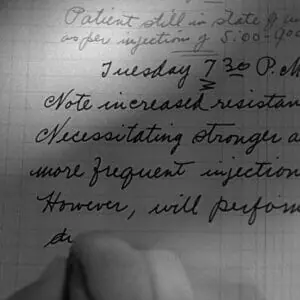 Patient still in state of
as per injection of 5:00 - 900
Tuesday 7 30 P.M
Note increased resistan
Necessitating stronger a
more frequent injection
However, will perform